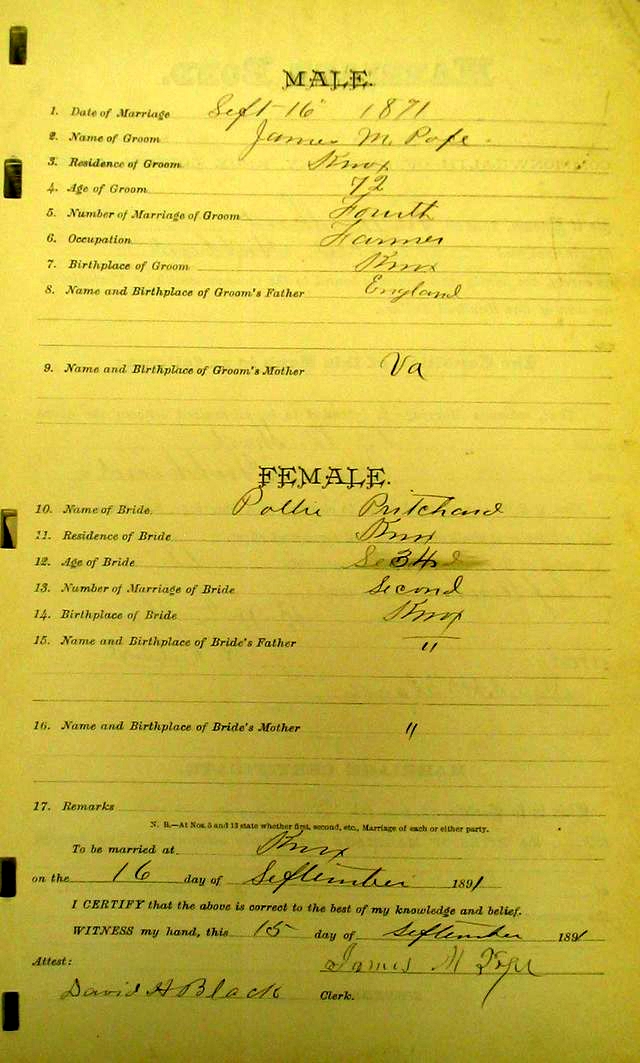 MALE.
1. Date of Marriage Sept 16" 1871
2. Name of Groom James M. Pope
3. Residence of Groom Knox
4. Age of Groom 72
5. Number of Marriage of Groom Fourth
6. Occupation Farmer
7. Birthplace of Groom Knox
8. Name and Birthplace of Groom's Father England
9. Name and Birthplace of Groom's Mother Va
FEMALE.
10. Name of Bride. Pollie Pritchard
11. Residence of Bride Knox
12. Age of Bride 34
13. Number of Marriage of Bride Second
14. Birthplace of Bride Knox
15. Name and Birthplace of Bride's Father "
16. Name and Birthplace of Bride's Mother "
17. Remarks
N. B.—At Nos. 5 and 13 state whether first, second, etc., Marriage of each or either party.
To be married at Knox
on the 16 day of September 1891
I CERTIFY that the above is correct to the best of my knowledge and belief.
WITNESS my hand, this 15 day of September 1891
Attest: James M Pope
David H Black Clerk.